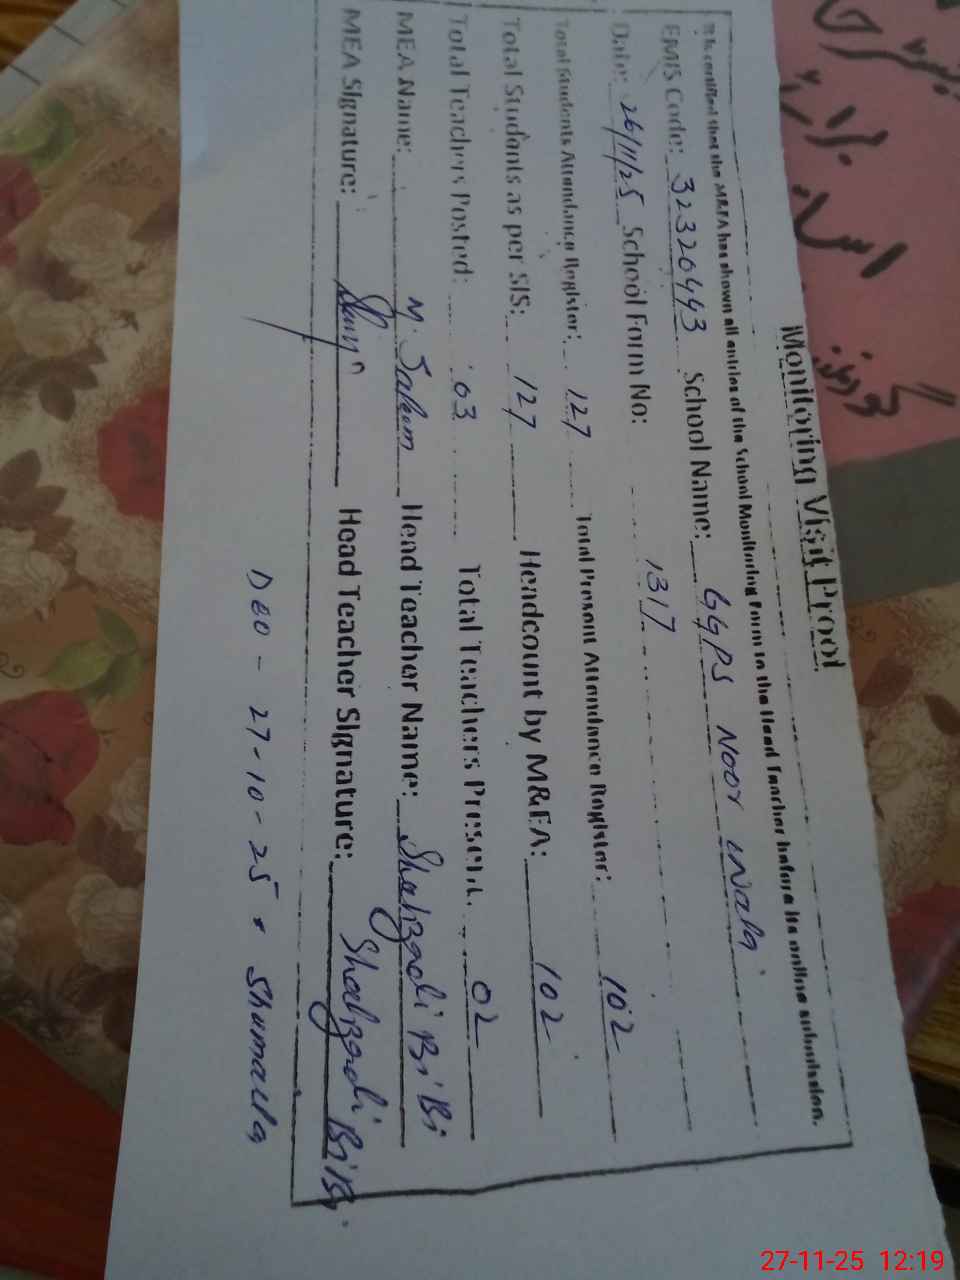 Monitoring Visit Proof
It is certified that the M&EA has shown all entries of the School Monitoring Form to the Head Teacher before its online submission.
EMIS Code: 32320443 School Name: GGPS Noor Wala
Date: 26/11/25 School Form No: 1317
Total Students Attendance Register: 127 Total Present Attendance Register: 102
Total Students as per SIS: 127 Headcount by M&EA: 102
Total Teachers Posted: 03 Total Teachers Present: 02
MEA Name: M. Saleem Head Teacher Name: Shahzadi BiBi
MEA Signature: Head Teacher Signature: Shahzadi BiBi
DEO - 27-10-25 * Shumaila
27-11-25 12:19